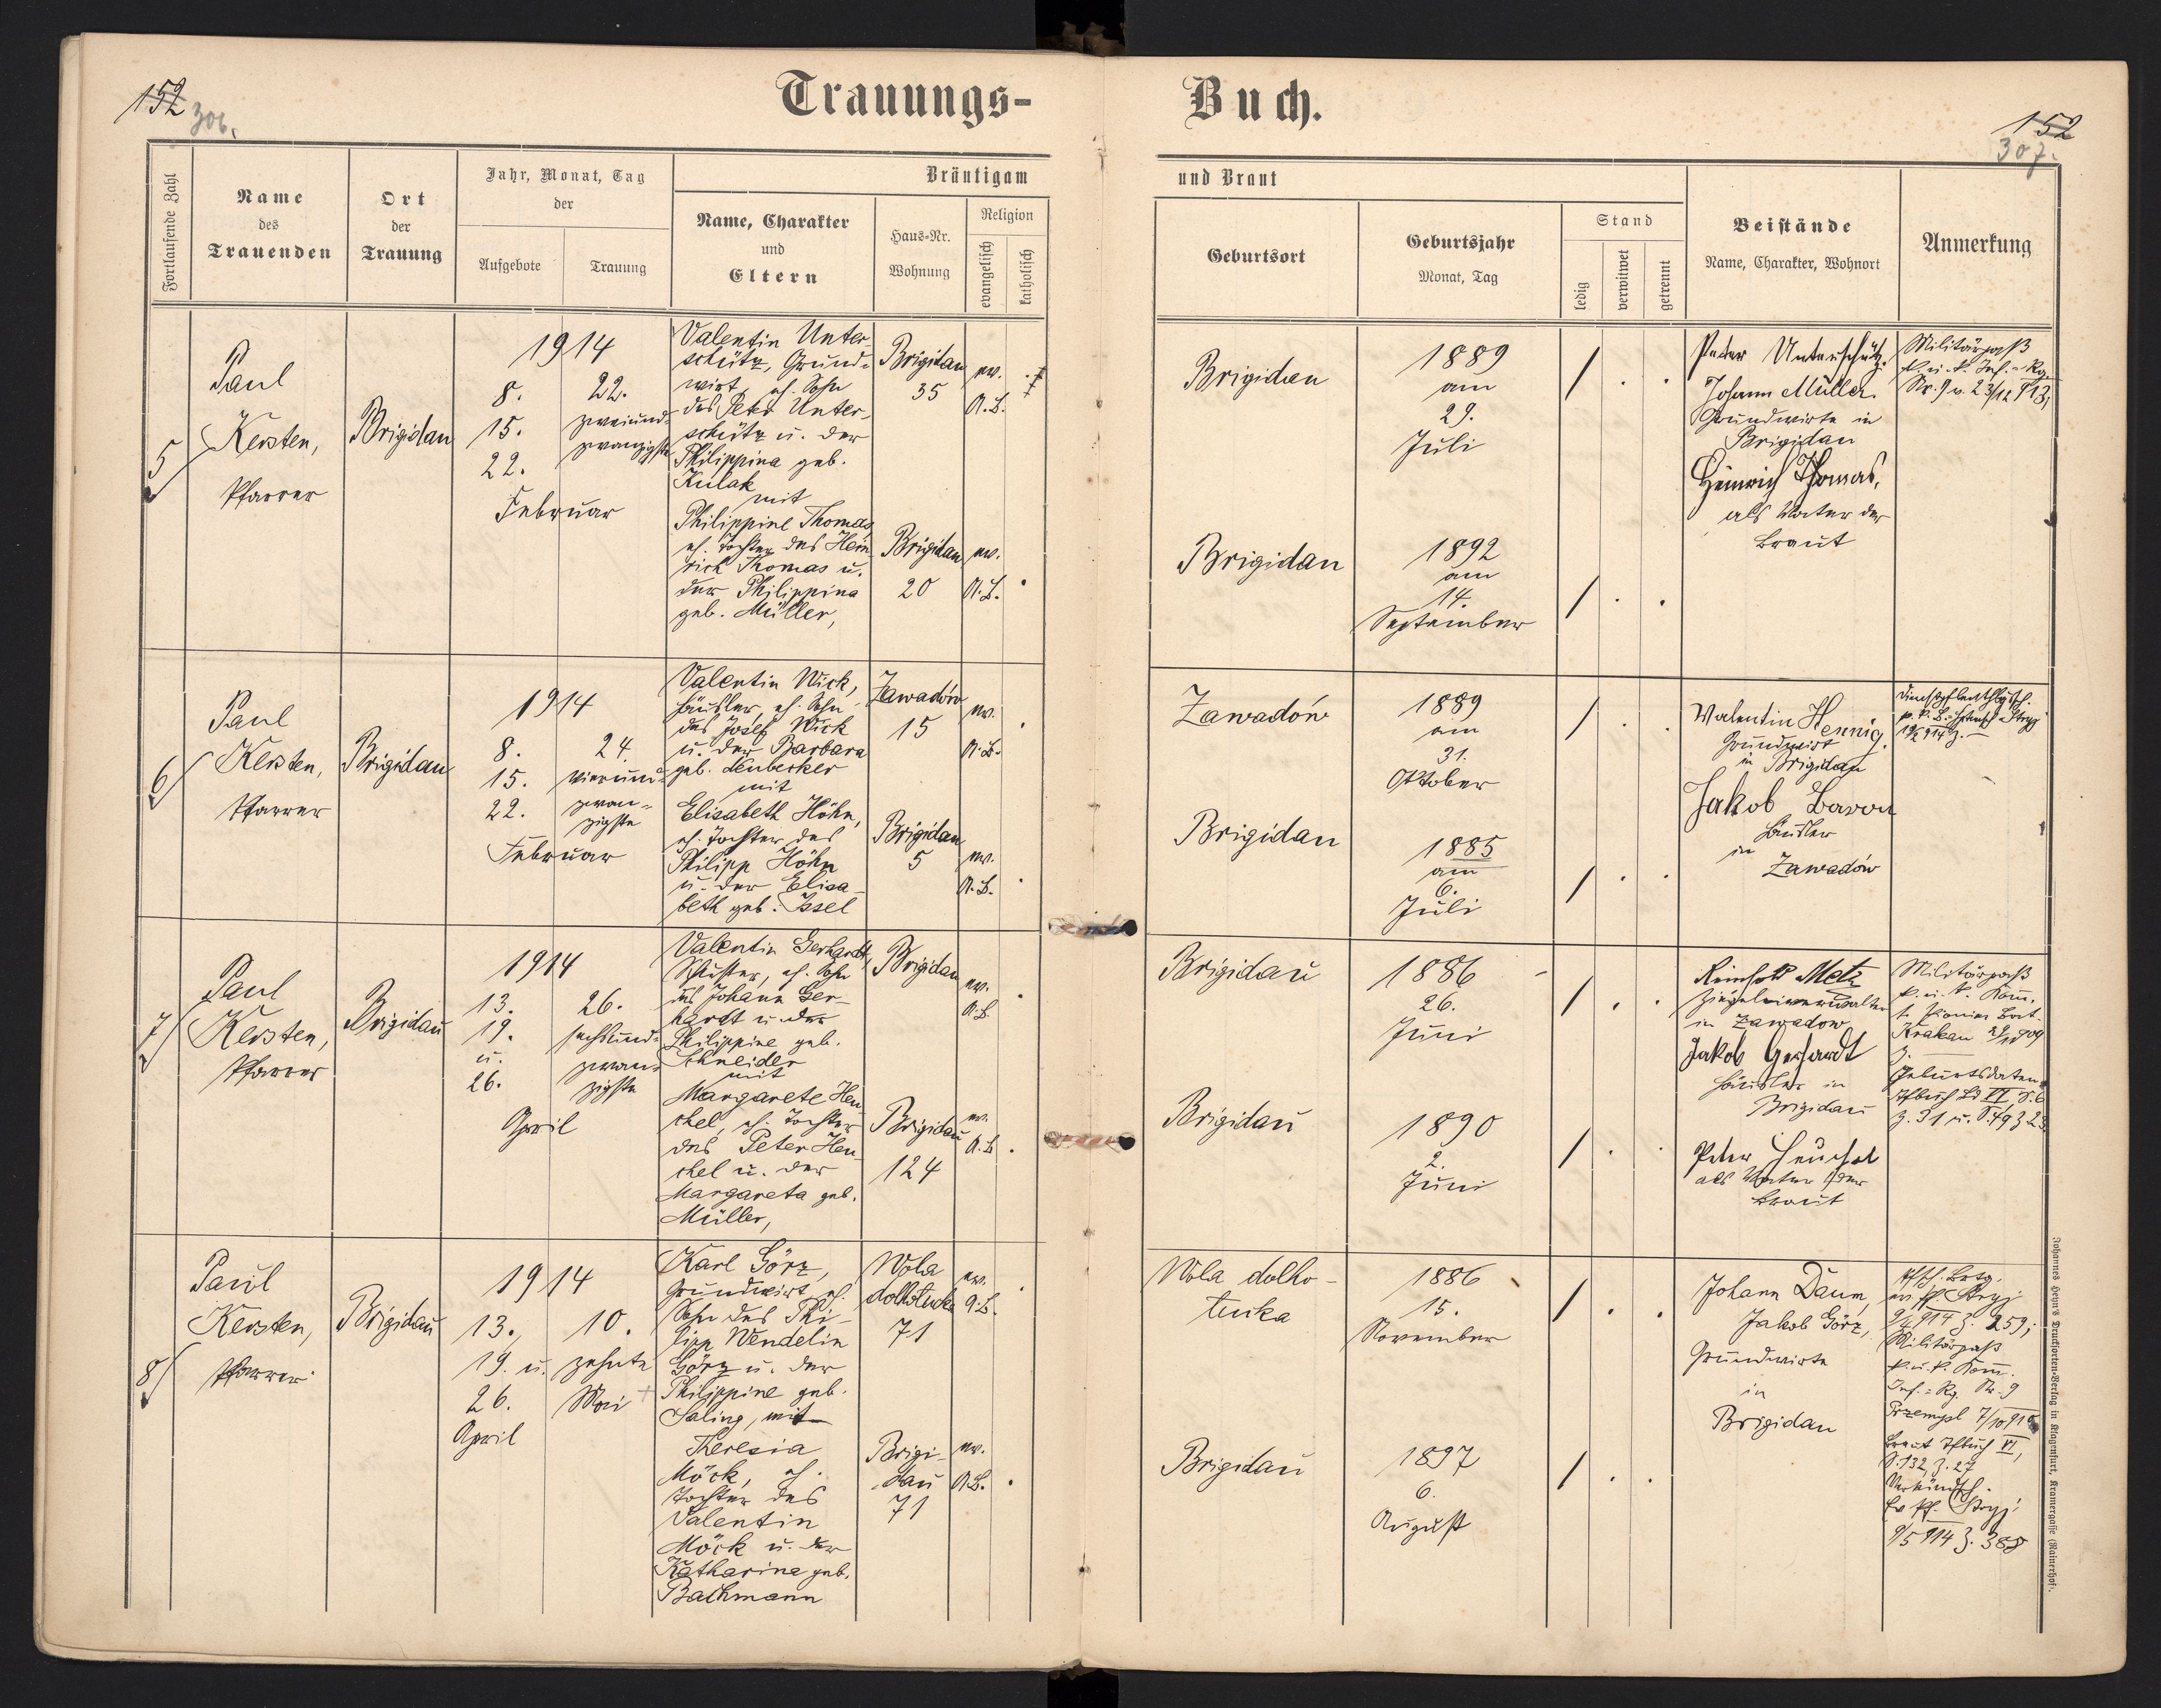 152
306.
Trauungs-
Buch.
152
307.
Fortlaufende Zahl
Name
des
Trauenden
Ort
der
Trauung
Jahr, Monat, Tag
der
Aufgebote
Trauung
Bräutigam
Name, Charakter
und
Eltern
Haus-Nr.
Wohnung
Religion
evangelisch
katholisch
und Braut
Geburtsort
Geburtsjahr
Monat, Tag
Stand
ledig
verwitwet
getrennt
Beistände
Name, Charakter, Wohnort
Anmerkung
5
Paul
Kersten,
Pfarrer
Brigidau
1914
8.
15.
22.
Februar
22.
zweiund-
zwanzigste
Valentin Unter-
schütz, Grund-
wirt, eh. Sohn
des Peter Unter-
schütz u. der
Philippina geb.
Kulak
mit
Philippine Thomas
eh. Tochter des Hein-
rich Thomas u.
der Philippina
geb. Müller,
Brigidau
35
ev.
A.B.
Brigidau
20
ev.
A.B.
Brigidau
1889
am
29.
Juli
Brigidau
1892
am
14.
September
Peter Unterschütz
Johann Müller
Grundwirte in
Brigidau
Heinrich Thomas,
als Vater der
Braut
Militärpaß
k. u. k. Inf.-Rg.
Nr. 9 v. 23/12 913,
6
Paul
Kersten,
Pfarrer
Brigidau
1914
8.
15.
22.
Februar
24.
vierund-
zwan-
zigste
Valentin Wick,
Häusler, eh. Sohn
des Josef Wick
u. der Barbara
geb. Leubecker
mit
Elisabeth Höhn,
eh. Tochter des
Philipp Höhn
u. der Elisa-
beth geb. Issel
Zawadów
15
ev.
A.B.
Brigidau
5
ev.
A.B.
Zawadów
1889
am
31.
Oktober
Brigidau
1885
am
6.
Juli
Valentin Hennig
Grundwirt
in Brigidau
Jakob Baron
Häusler
in
Zawadów
7
Paul
Kersten,
Pfarrer
Brigidau
1914
13.
19.
u.
26.
April
26.
sechsund-
zwan-
zigste
Valentin Gerhardt,
Schuster, eh. Sohn
des Johann Ger-
hardt u. der
Philippine geb.
Schneider
mit
Margarete Heu-
chel, eh. Tochter
des Peter Heu-
chel u. der
Margareta geb.
Müller,
Brigidau
ev.
A.B.
Brigidau
124
ev.
A.B.
Brigidau
1886
26.
Juni
Brigidau
1890
2.
Juni
Reinhold Metz
Ziegeleiverwalter
in Zawadow
Jakob Gerhardt
Häusler in
Brigidau
Peter Heuchel
als Vater der
Braut
Militärpaß
k. u. k. Kom.
Pionier Bat.
Krakau
Geburtsdaten
8
Paul
Kersten,
Pfarrer
Brigidau
1914
13.,
19. u.
26.
April
10.
zehnte
Mai
Karl Görz,
Grundwirt, eh.
Sohn des Phi-
lipp Wendelin
Görz u. der
Philippine geb.
Saling, mit
Theresia
Möck, eh.
Tochter des
Valentin
Möck u. der
Katharina geb.
Bachmann
Wola
dolhotucka
71
ev.
A.B.
Brigi-
dau
71
ev.
A.B.
Wola dolho-
tucka
1886
15.
November
Brigidau
1897
6.
August
Johann Daum,
Jakob Görz,
Grundwirte
in
Brigidau
Stryj
Z. 259;
Militärpaß
k. u. k. Kom.
Inf.-Rg. Nr. 9
Braut Tfbuch VI,
S. 132, Z. 27
Verkündsch.
Ev. Pf. Stryj
9/5 914 Z. 388
Johannes Heyn's Drucksorten-Verlag in Klagenfurt, Kramergasse (Rainerhof).